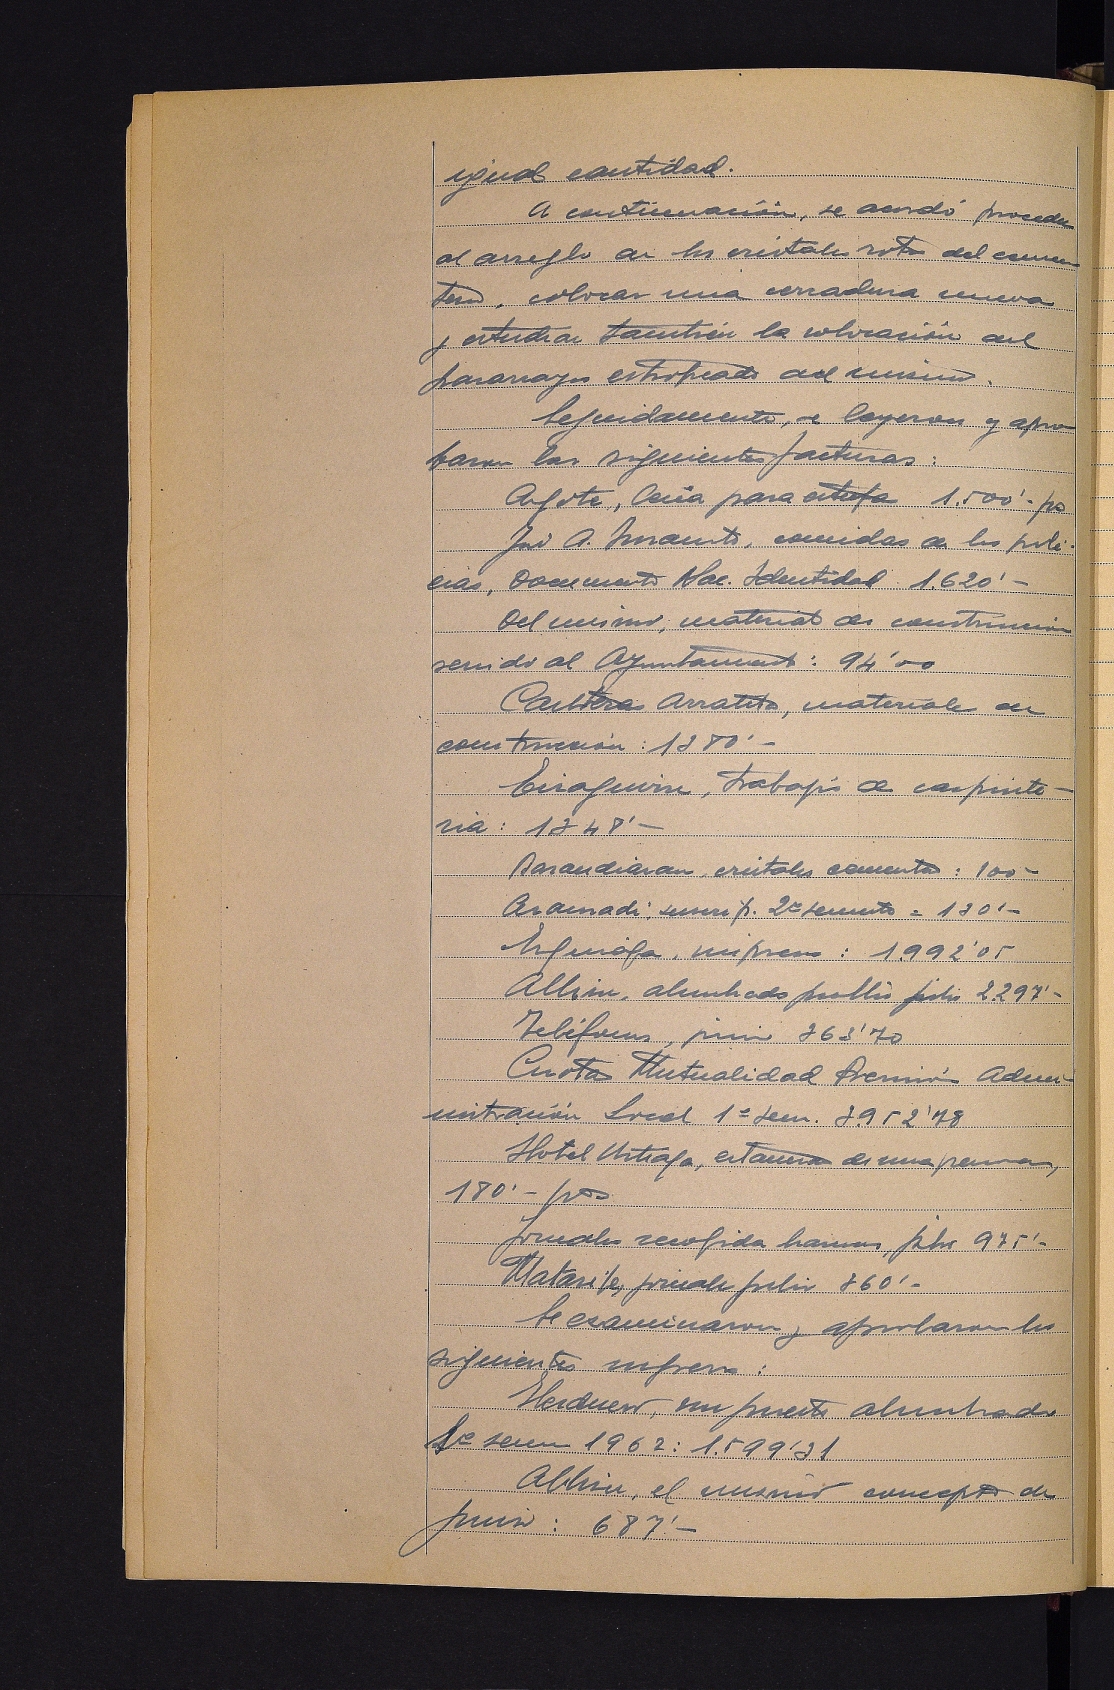 igual cantidad.
A continuación, se acordó proceder
al arreglo de los cristales rotos del cemen
terio, colocar una cerradura nueva
y estudiar también la colocación del
pararrayos estropeado del mismo.
Seguidamente, se leyeron y apro
baron las siguientes facturas:
Argote, leña para estufa 1.500'-
José A. comidas a los poli-
cias, Documento Nac. Identidad 1.620'-
Del mismo, material de construcción
servido al Ayuntamiento: 94'00
Cantera Arratetu, materiales de
construcción: 1380'-
Eizaguirre, trabajos de carpinte-
ria: 1348'-
Barandiaran, cristales cemento: 100-
Aramadi, suscrip. 2º semestre = 130'-
impresos: 1992'05
Albiru, alumbrado publico julio 2.297'-
Teléfonos, junio 363'70
Cuota Mutualidad Prevision Admi-
nistración Local 1º sem. 3952'78
Hotel Urteaga, estancia de una persona,
180'- pts
Jornales recogida basuras, julio 975'-
Matarife, jornales julio 360'-
Se examinaron y aprobaron los
siguientes ingresos:
Iberduero, impuesto alumbrado
1º sem 1962: 1.599'31
Albiru, el mismo concepto de
junio: 687'-